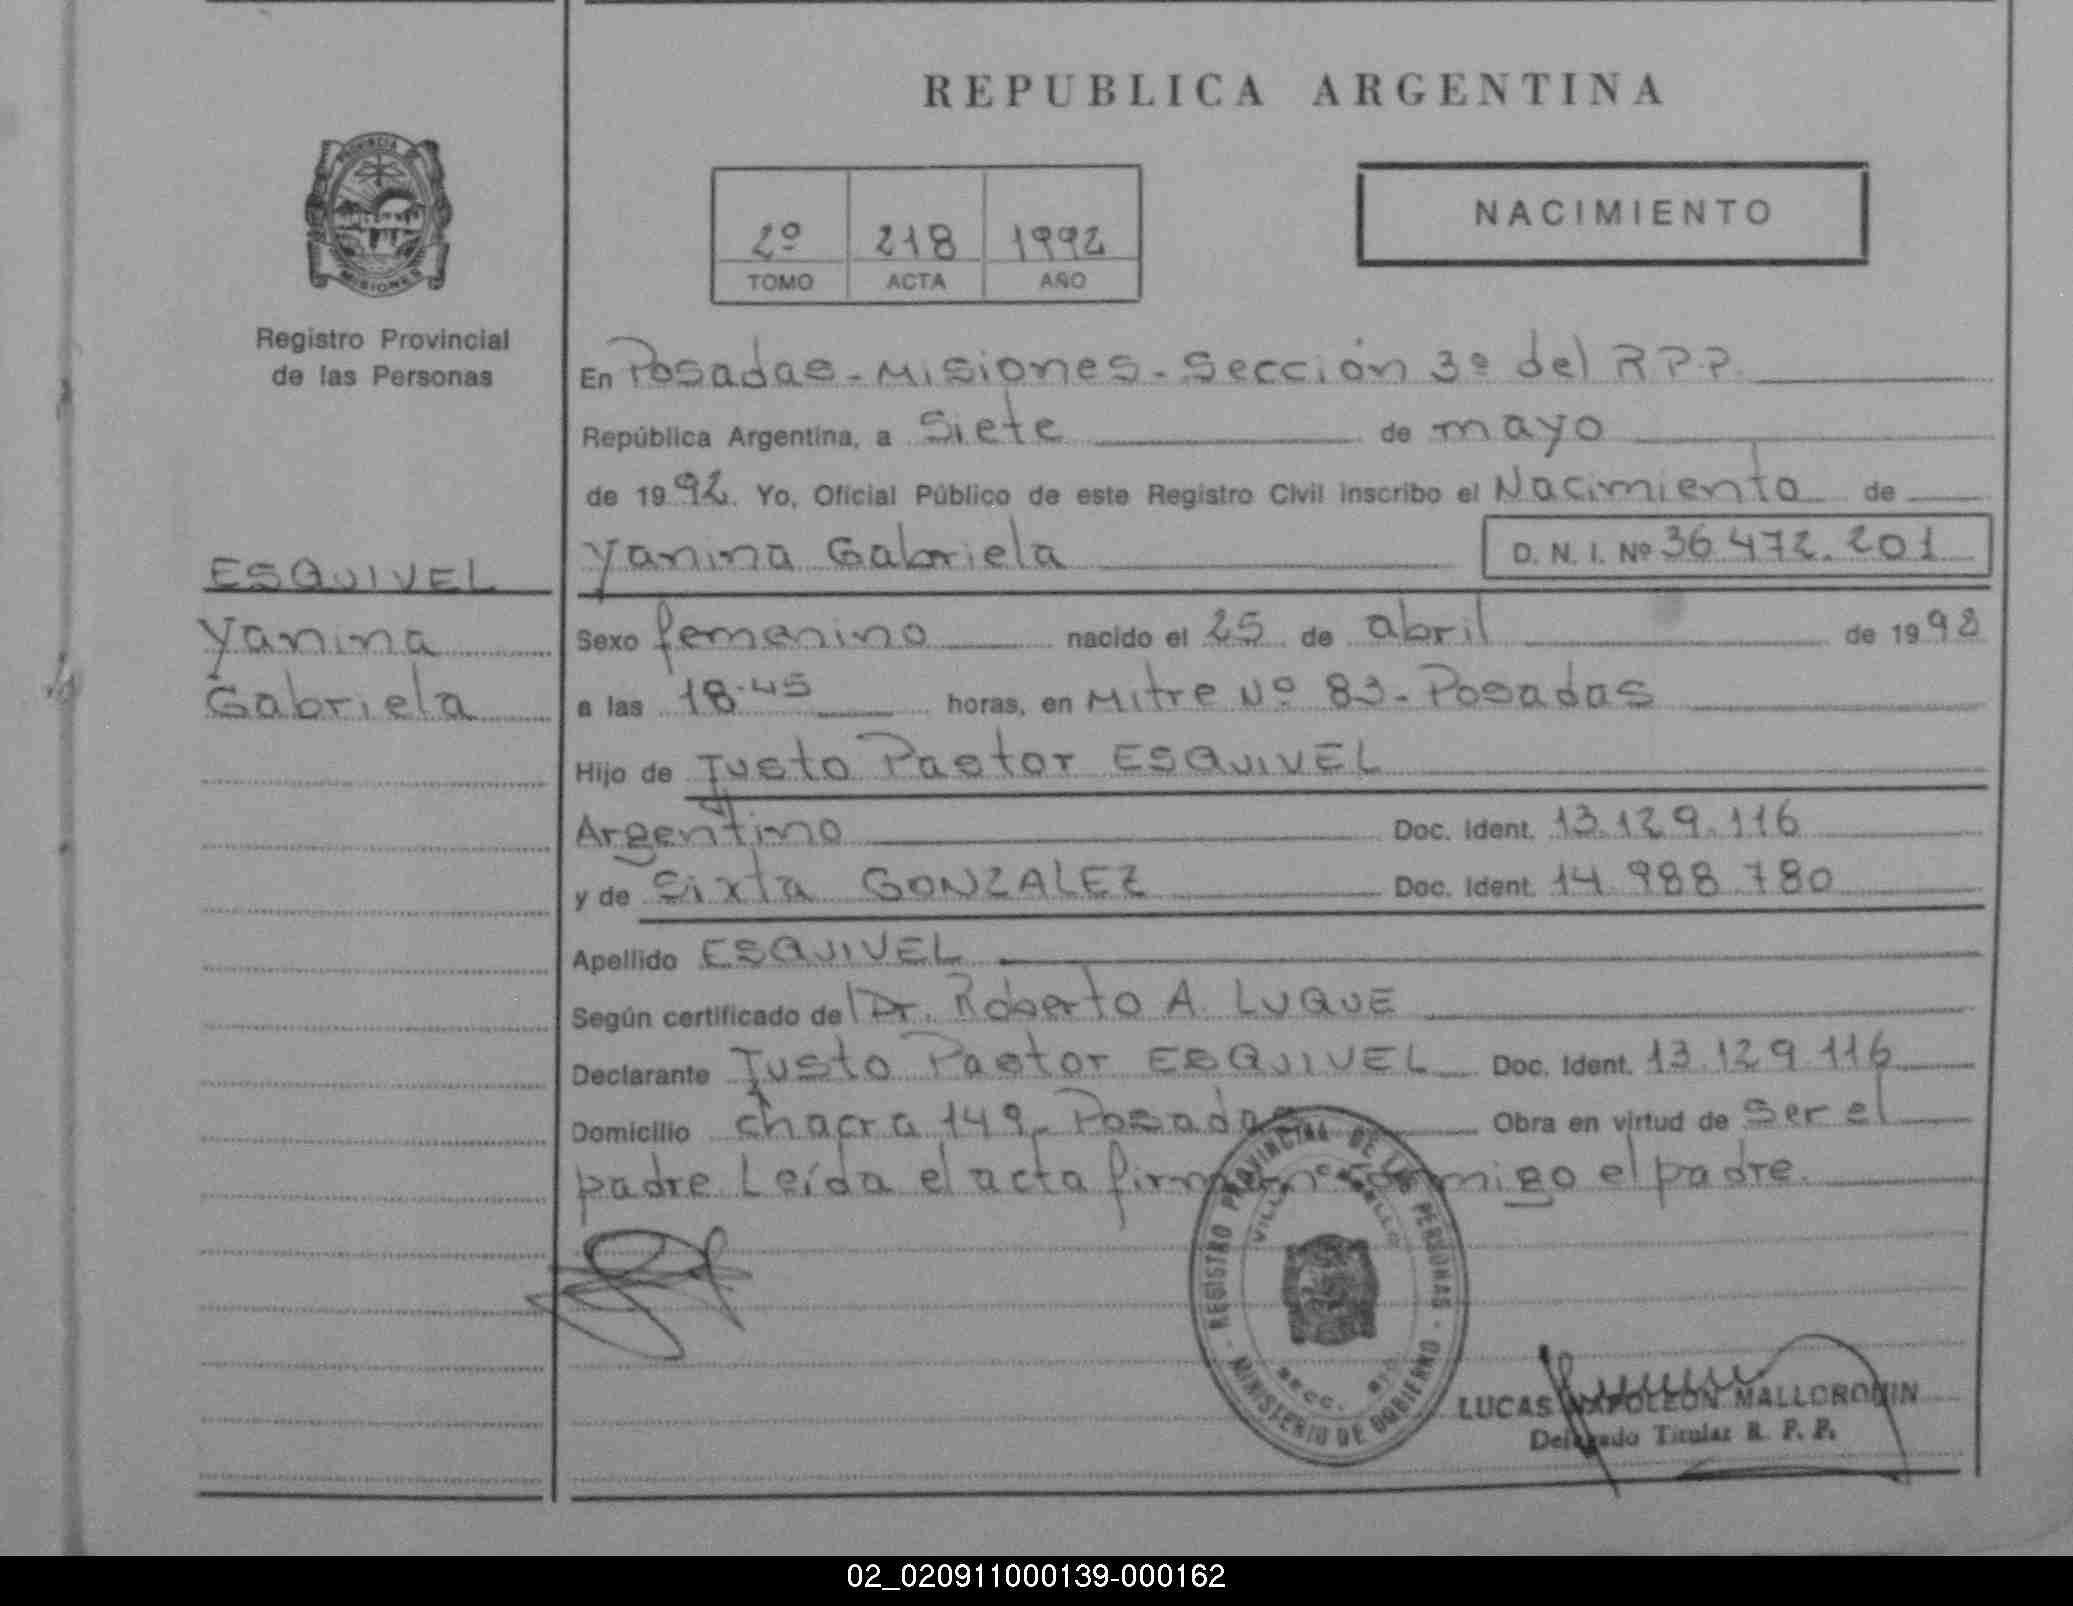 REPUBLICA ARGENTINA
PROVINCIA DE
MISIONES
Registro Provincial
de las Personas
2º 218 1992
TOMO ACTA AÑO
NACIMIENTO
En Posadas-Misiones-Sección 3º del RPP.
República Argentina, a Siete de mayo
de 1992. Yo, Oficial Público de este Registro Civil inscribo el Nacimiento de
Yanina Gabriela D. N. I. Nº 36.472.201
ESQUIVEL
Yanina
Gabriela
Sexo femenino nacido el 25 de abril de 1992
a las 18.45 horas, en Mitre Nº 83-Posadas
Hijo de Justo Pastor ESQUIVEL
Argentino Doc. Ident. 13.129.116
y de Sixta GONZALEZ Doc. Ident. 14.988.780
Apellido ESQUIVEL
Según certificado del Dr. Roberto A. LUQUE
Declarante Justo Pastor ESQUIVEL Doc. Ident. 13.129.116
Domicilio chacra 149-Posadas Obra en virtud de ser el
padre. Leída el acta firman conmigo el padre.
REGISTRO PROVINCIAL DE LAS PERSONAS - MINISTERIO DE GOBIERNO -
VILLA
SECC.
LUCAS NAPOLEON MALLORQUIN
Delegado Titular R. P. P.
02_020911000139-000162